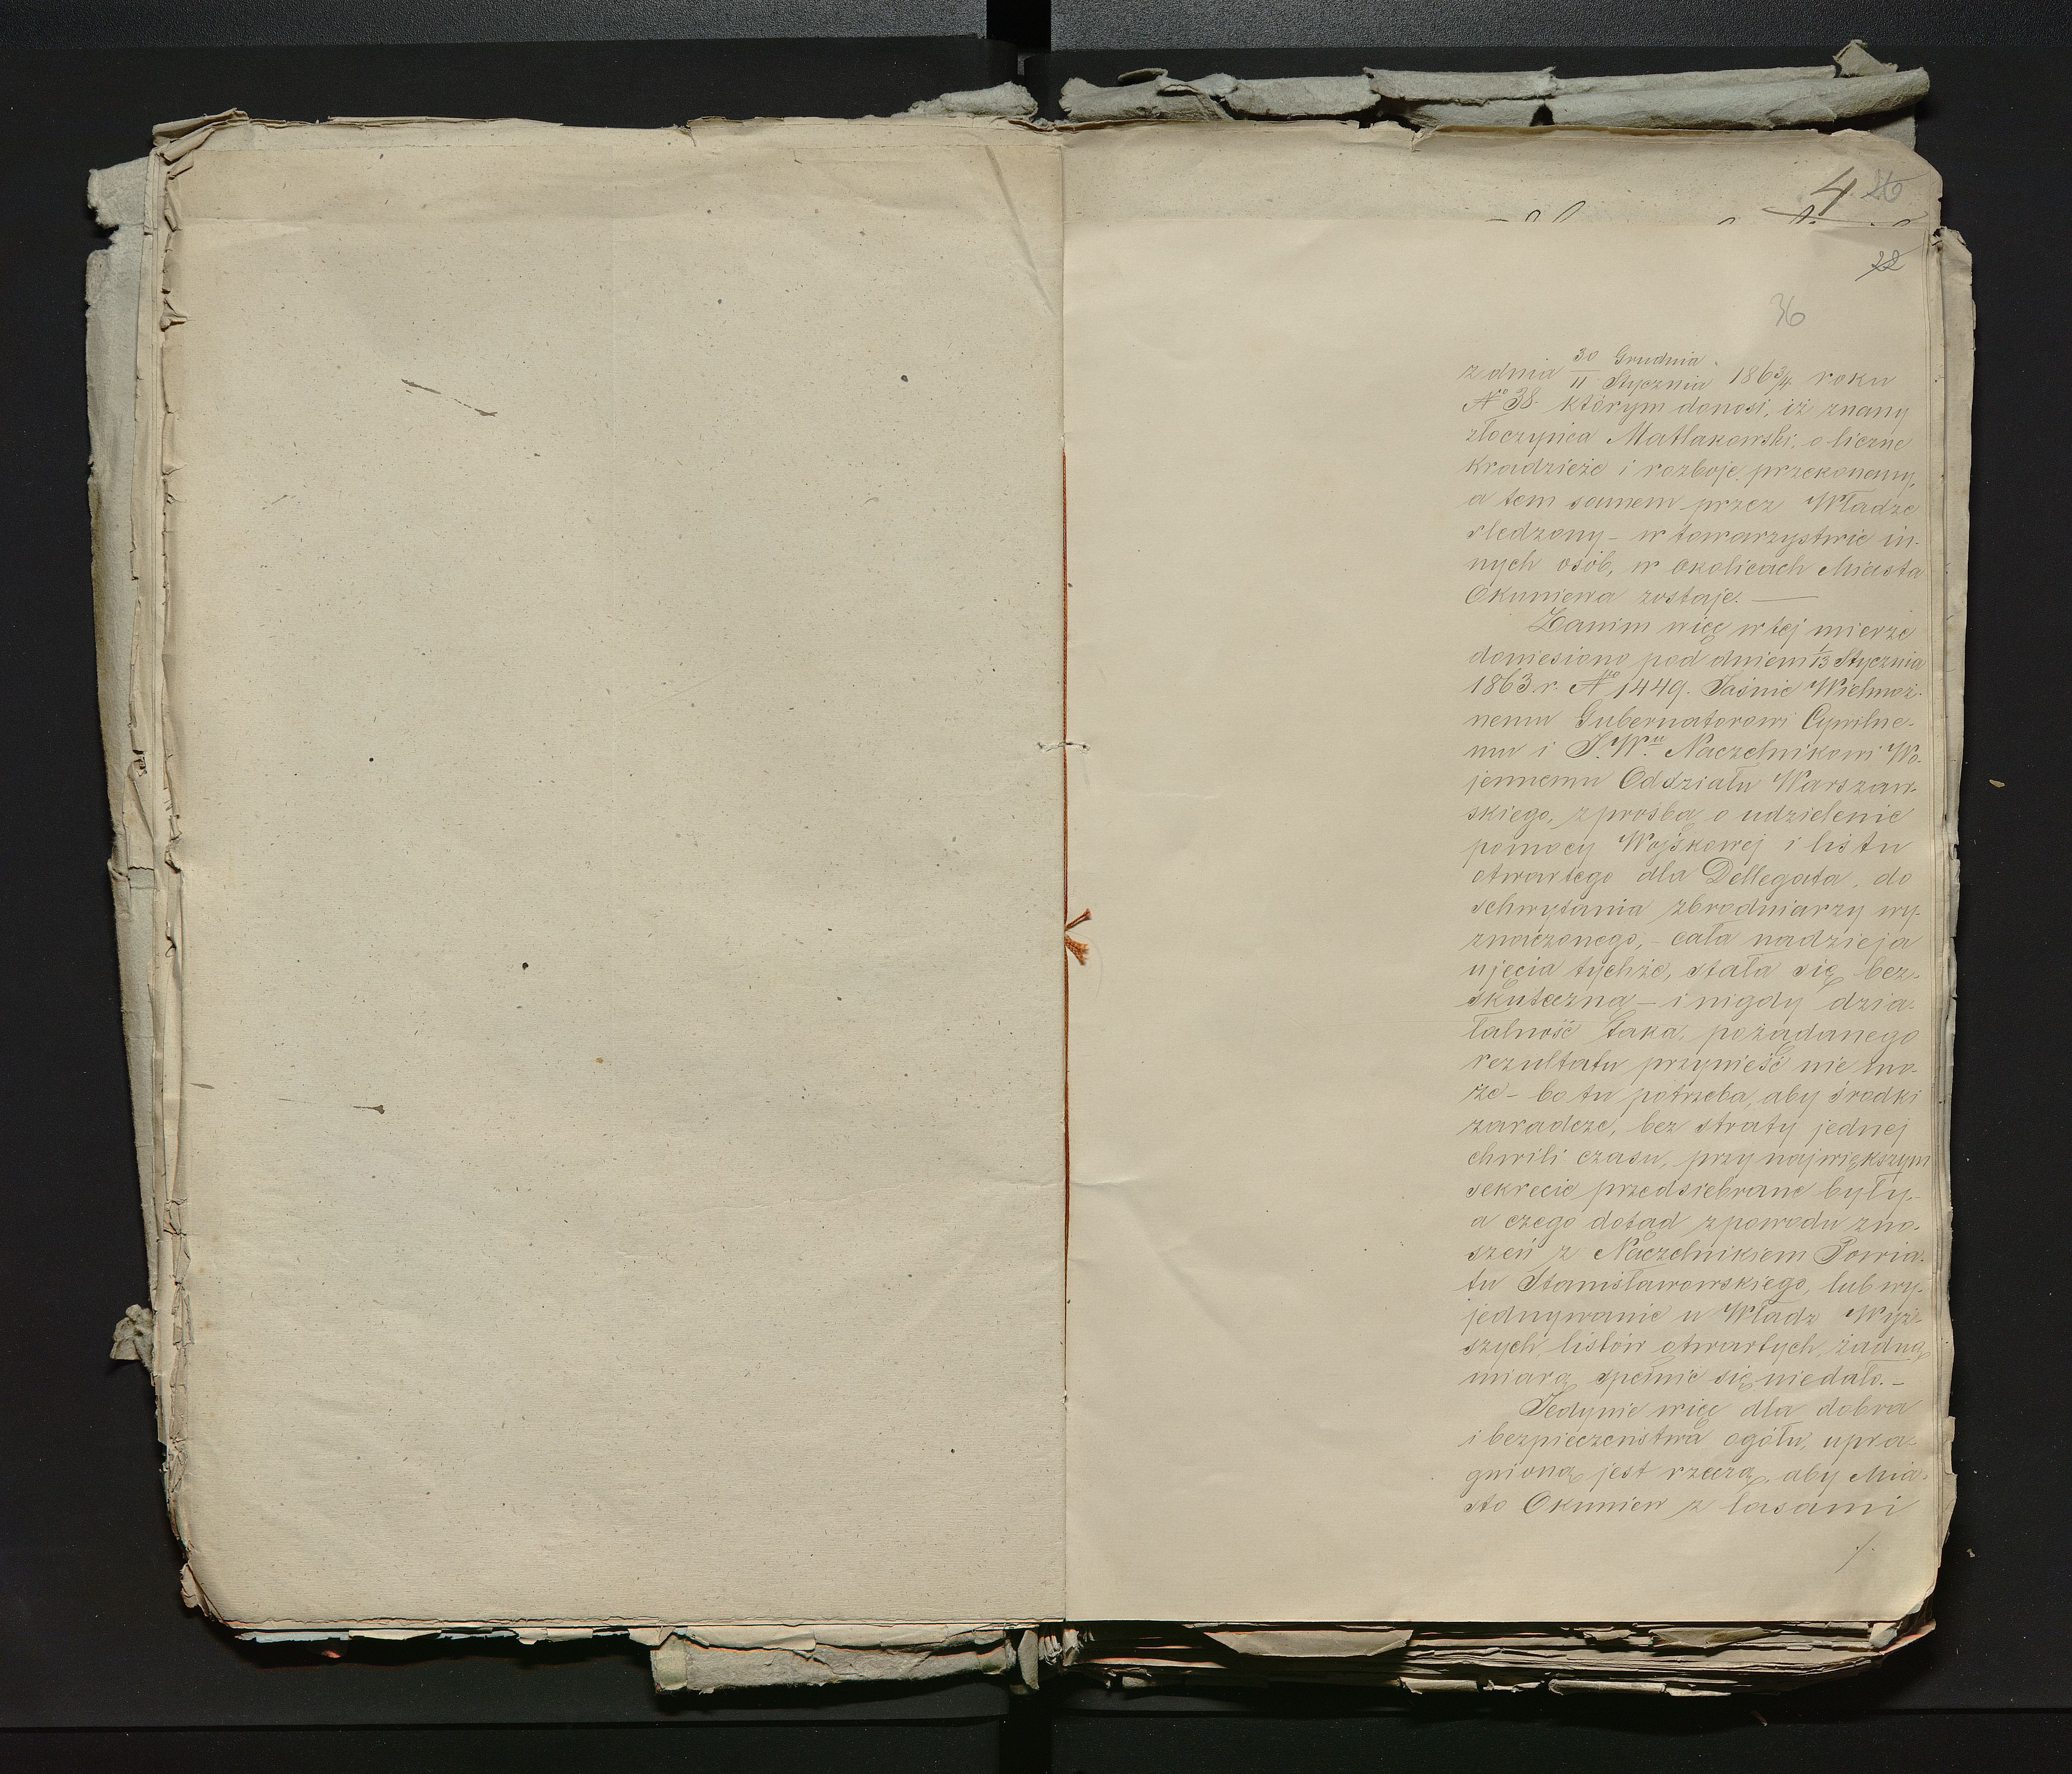 4 26
22
36
z dnia 30 Grudnia / 11 Stycznia 1863/4 roku
No 38. którym donosi, iż znany
złoczyńca Matlakowski, o liczne
kradzieże i rozboje przekonany,
a tem samem przez Władze
śledzony – w towarzystwie in-
nych osób, w okolicach Miasta
Okuniewa zostaje. —
Zanim więc w tej mierze
doniesiono pod dniem 1/13 Stycznia
1863 r. No 1449. Jaśnie Wielmoż-
nemu Gubernatorowi Cywilne-
mu i J. Wu Naczelnikowi Wo-
jennemu Oddziału Warszaw-
skiego, z prośbą o udzielenie
pomocy Wojskowej i listu
otwartego dla Dellegata, do
schwytania zbrodniarzy wy-
znaczonego, – cała nadzieja
ujęcia tychże, stała się bez-
skuteczna – i nigdy dzia-
łalność taka, pożądanego
rezultatu przynieść nie mo-
że – bo tu potrzeba, aby środki
zaradcze, bez straty jednej
chwili czasu, przy największym
sekrecie przedsiebrane były, –
a czego dotąd z powodu zno-
szeń z Naczelnikiem Powia-
tu Stanisławowskiego, lub wy-
jednywanie u Władz Wyż-
szych listów otwartych, żadną
miarą spełnić się niedało. –
Jedynie więc dla dobra
i bezpieczeństwa ogółu, upra-
gnioną jest rzeczą, aby Mia-
sto Okuniew z lasami
./.